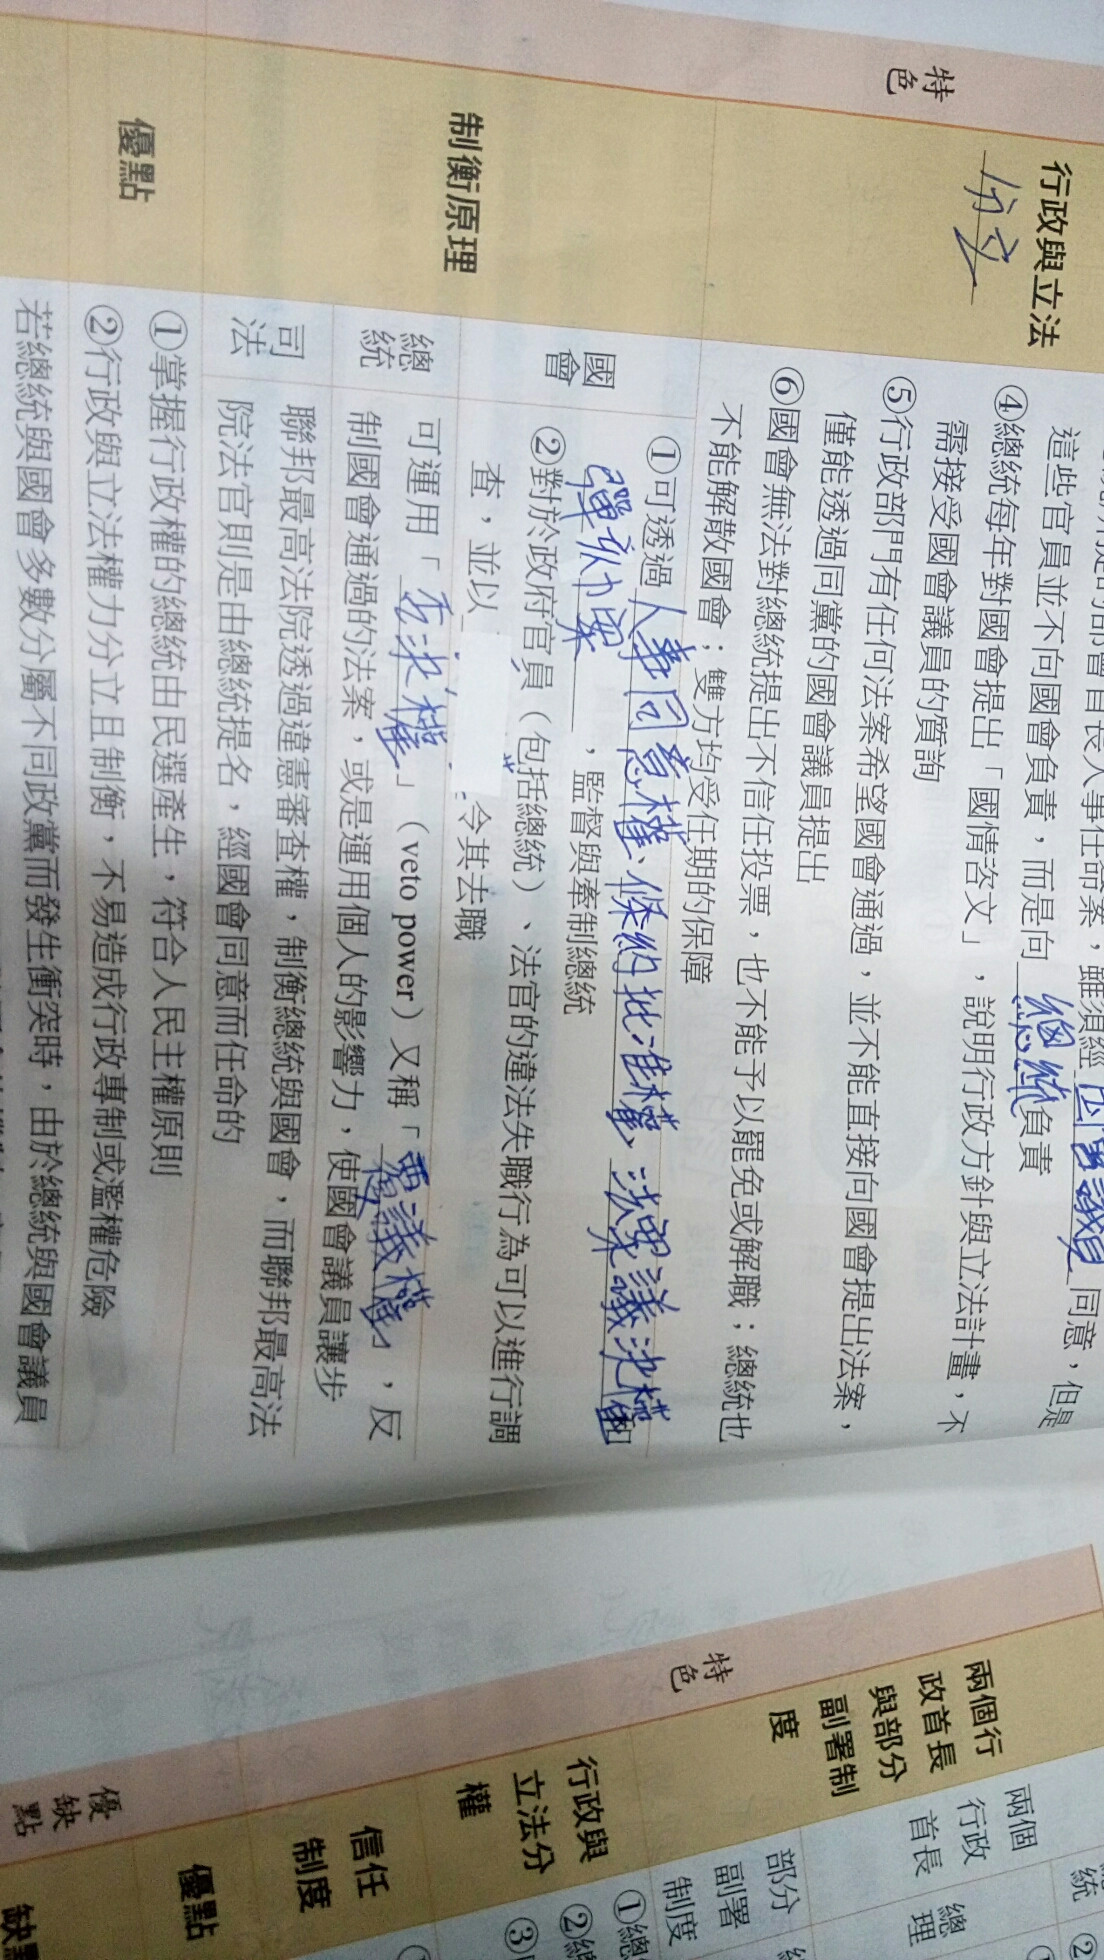 特色
行政與立法
分立
這些官員並不向國會負責，而是向總統負責
④總統每年對國會提出「國情咨文」，說明行政方針與立法計畫，不
需接受國會議員的質詢
⑤行政部門有任何法案希望國會通過，並不能直接向國會提出法案，
僅能透過同黨的國會議員提出
⑥國會無法對總統提出不信任投票，也不能予以罷免或解職；總統也
不能解散國會；雙方均受任期的保障
制衡原理
國會
①可透過人事同意權、條約批准權、決算議決權
彈劾案，監督與牽制總統
②對於政府官員（包括總統）、法官的違法失職行為可以進行調
查，並以
令其去職
總統
可運用「否決權」（veto power）又稱「覆議權」，反
制國會通過的法案，或是運用個人的影響力，使國會議員讓步
司法
聯邦最高法院透過違憲審查權，制衡總統與國會，而聯邦最高法
院法官則是由總統提名，經國會同意而任命的
優點
①掌握行政權的總統由民選產生，符合人民主權原則
②行政與立法權力分立且制衡，不易造成行政專制或濫權危險
若總統與國會多數分屬不同政黨而發生衝突時，由於總統與國會議員
特色
兩個行
政首長
與部分
副署制
度
兩個
行政
首長
總理
部分
副署
制度
行政與
立法分
權
①總
②總
③
信任
制度
優缺點
優點